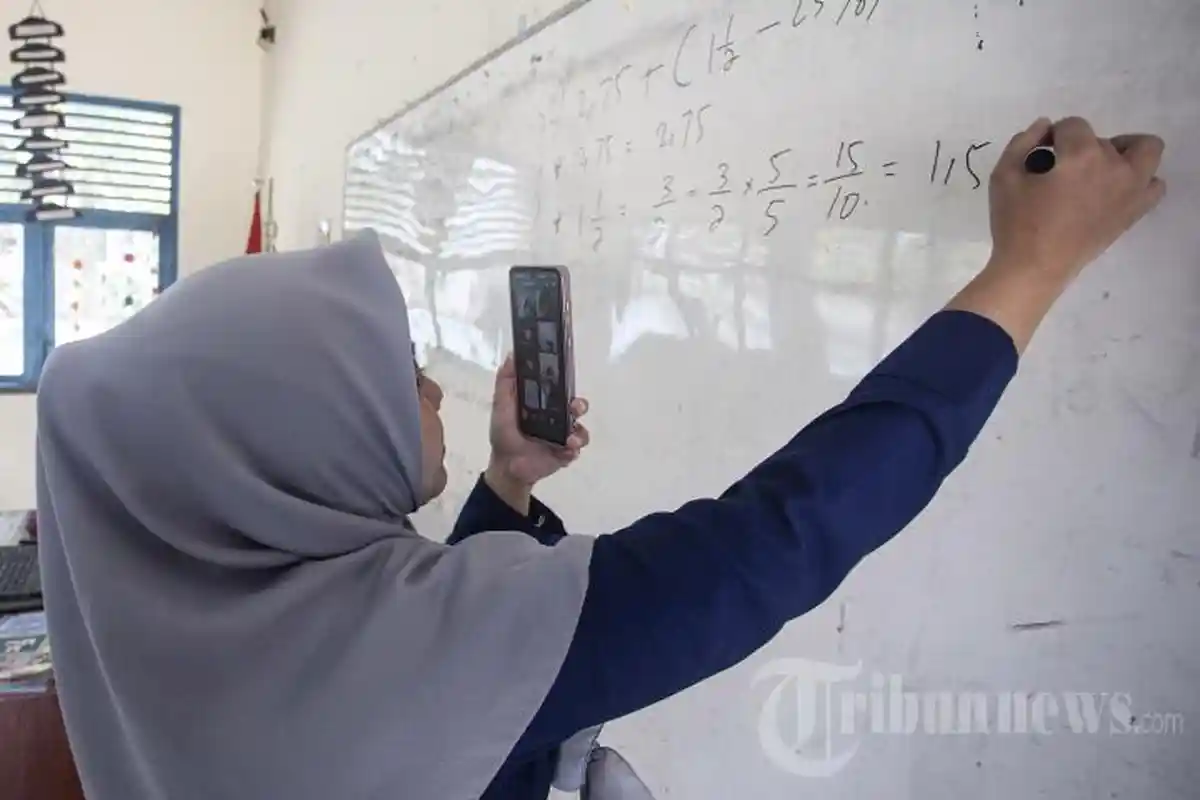 2,75 + (1 1/2 - 25%)
* 2,75 = 2,75
* 1 1/2 = 3/2 = 3/2 × 5/5 = 15/10 = 1,5
Tribunnews.com